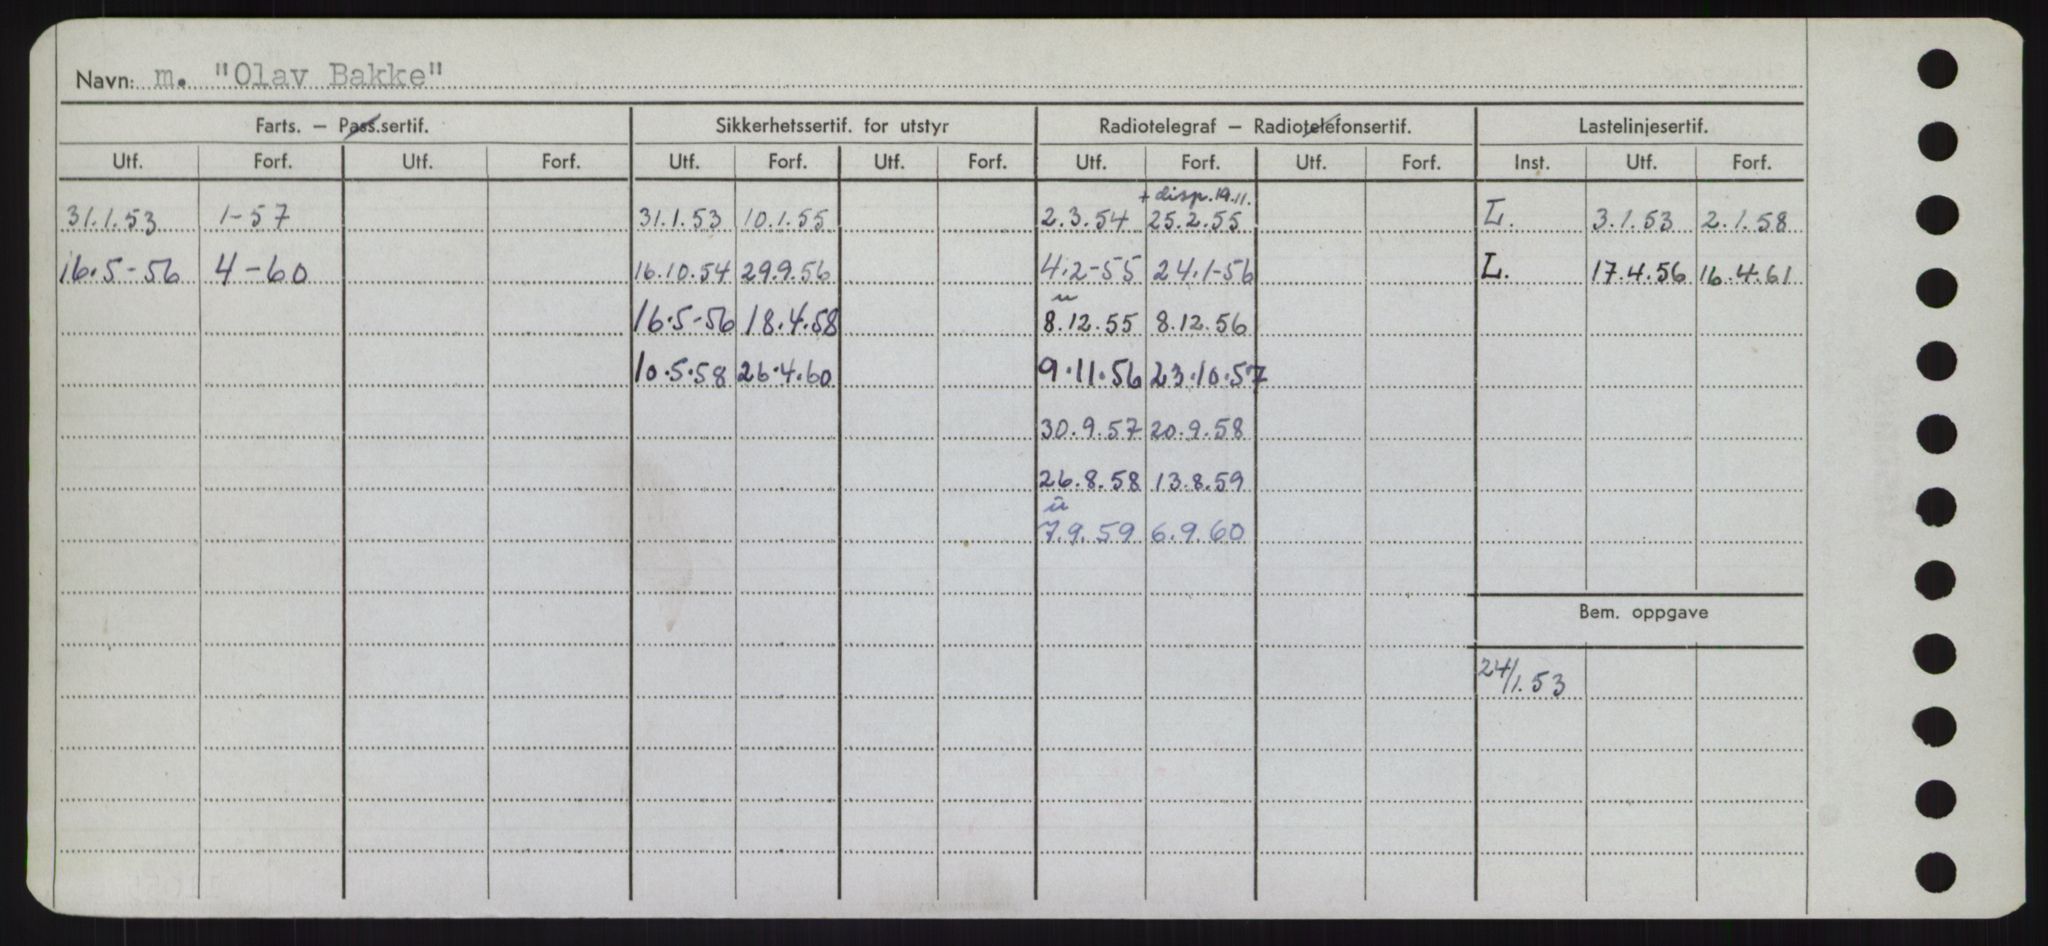 Navn: m. "Olav Bakke"
Farts. – Pass.sertif. Sikkerhetssertif. for utstyr Radiotelegraf – Radiotelefonsertif. Lastelinjesertif.
Utf. Forf. Utf. Forf. Utf. Forf. Utf. Forf. Utf. Forf. Utf. Forf. Inst. Utf. Forf.
+ disp. 19.11.
31.1.53 1-57 31.1.53 10.1.55 2.3.54 25.2.55 L. 3.1.53 2.1.58
16.5-56 4-60 16.10.54 29.9.56 4.2-55 24.1-56 L. 17.4.56 16.4.61
u
16.5-56 18.4.58 8.12.55 8.12.56
10.5.58 26.4.60 9.11.56 23.10.57
30.9.57 20.9.58
26.8.58 13.8.59
u
7.9.59 6.9.60
Bem. oppgave
24/1.53